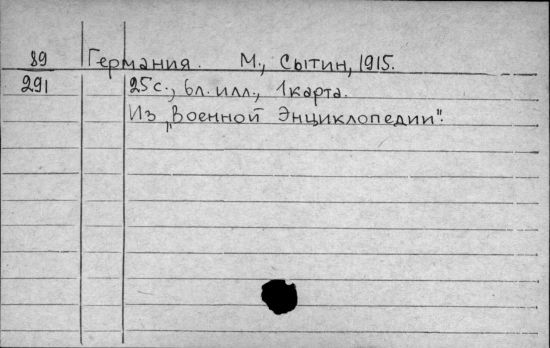 89 Германия. М., Сытин, 1915.
291 25с., 6л. илл., 1 карта.
Из „Военной Энциклопедии".